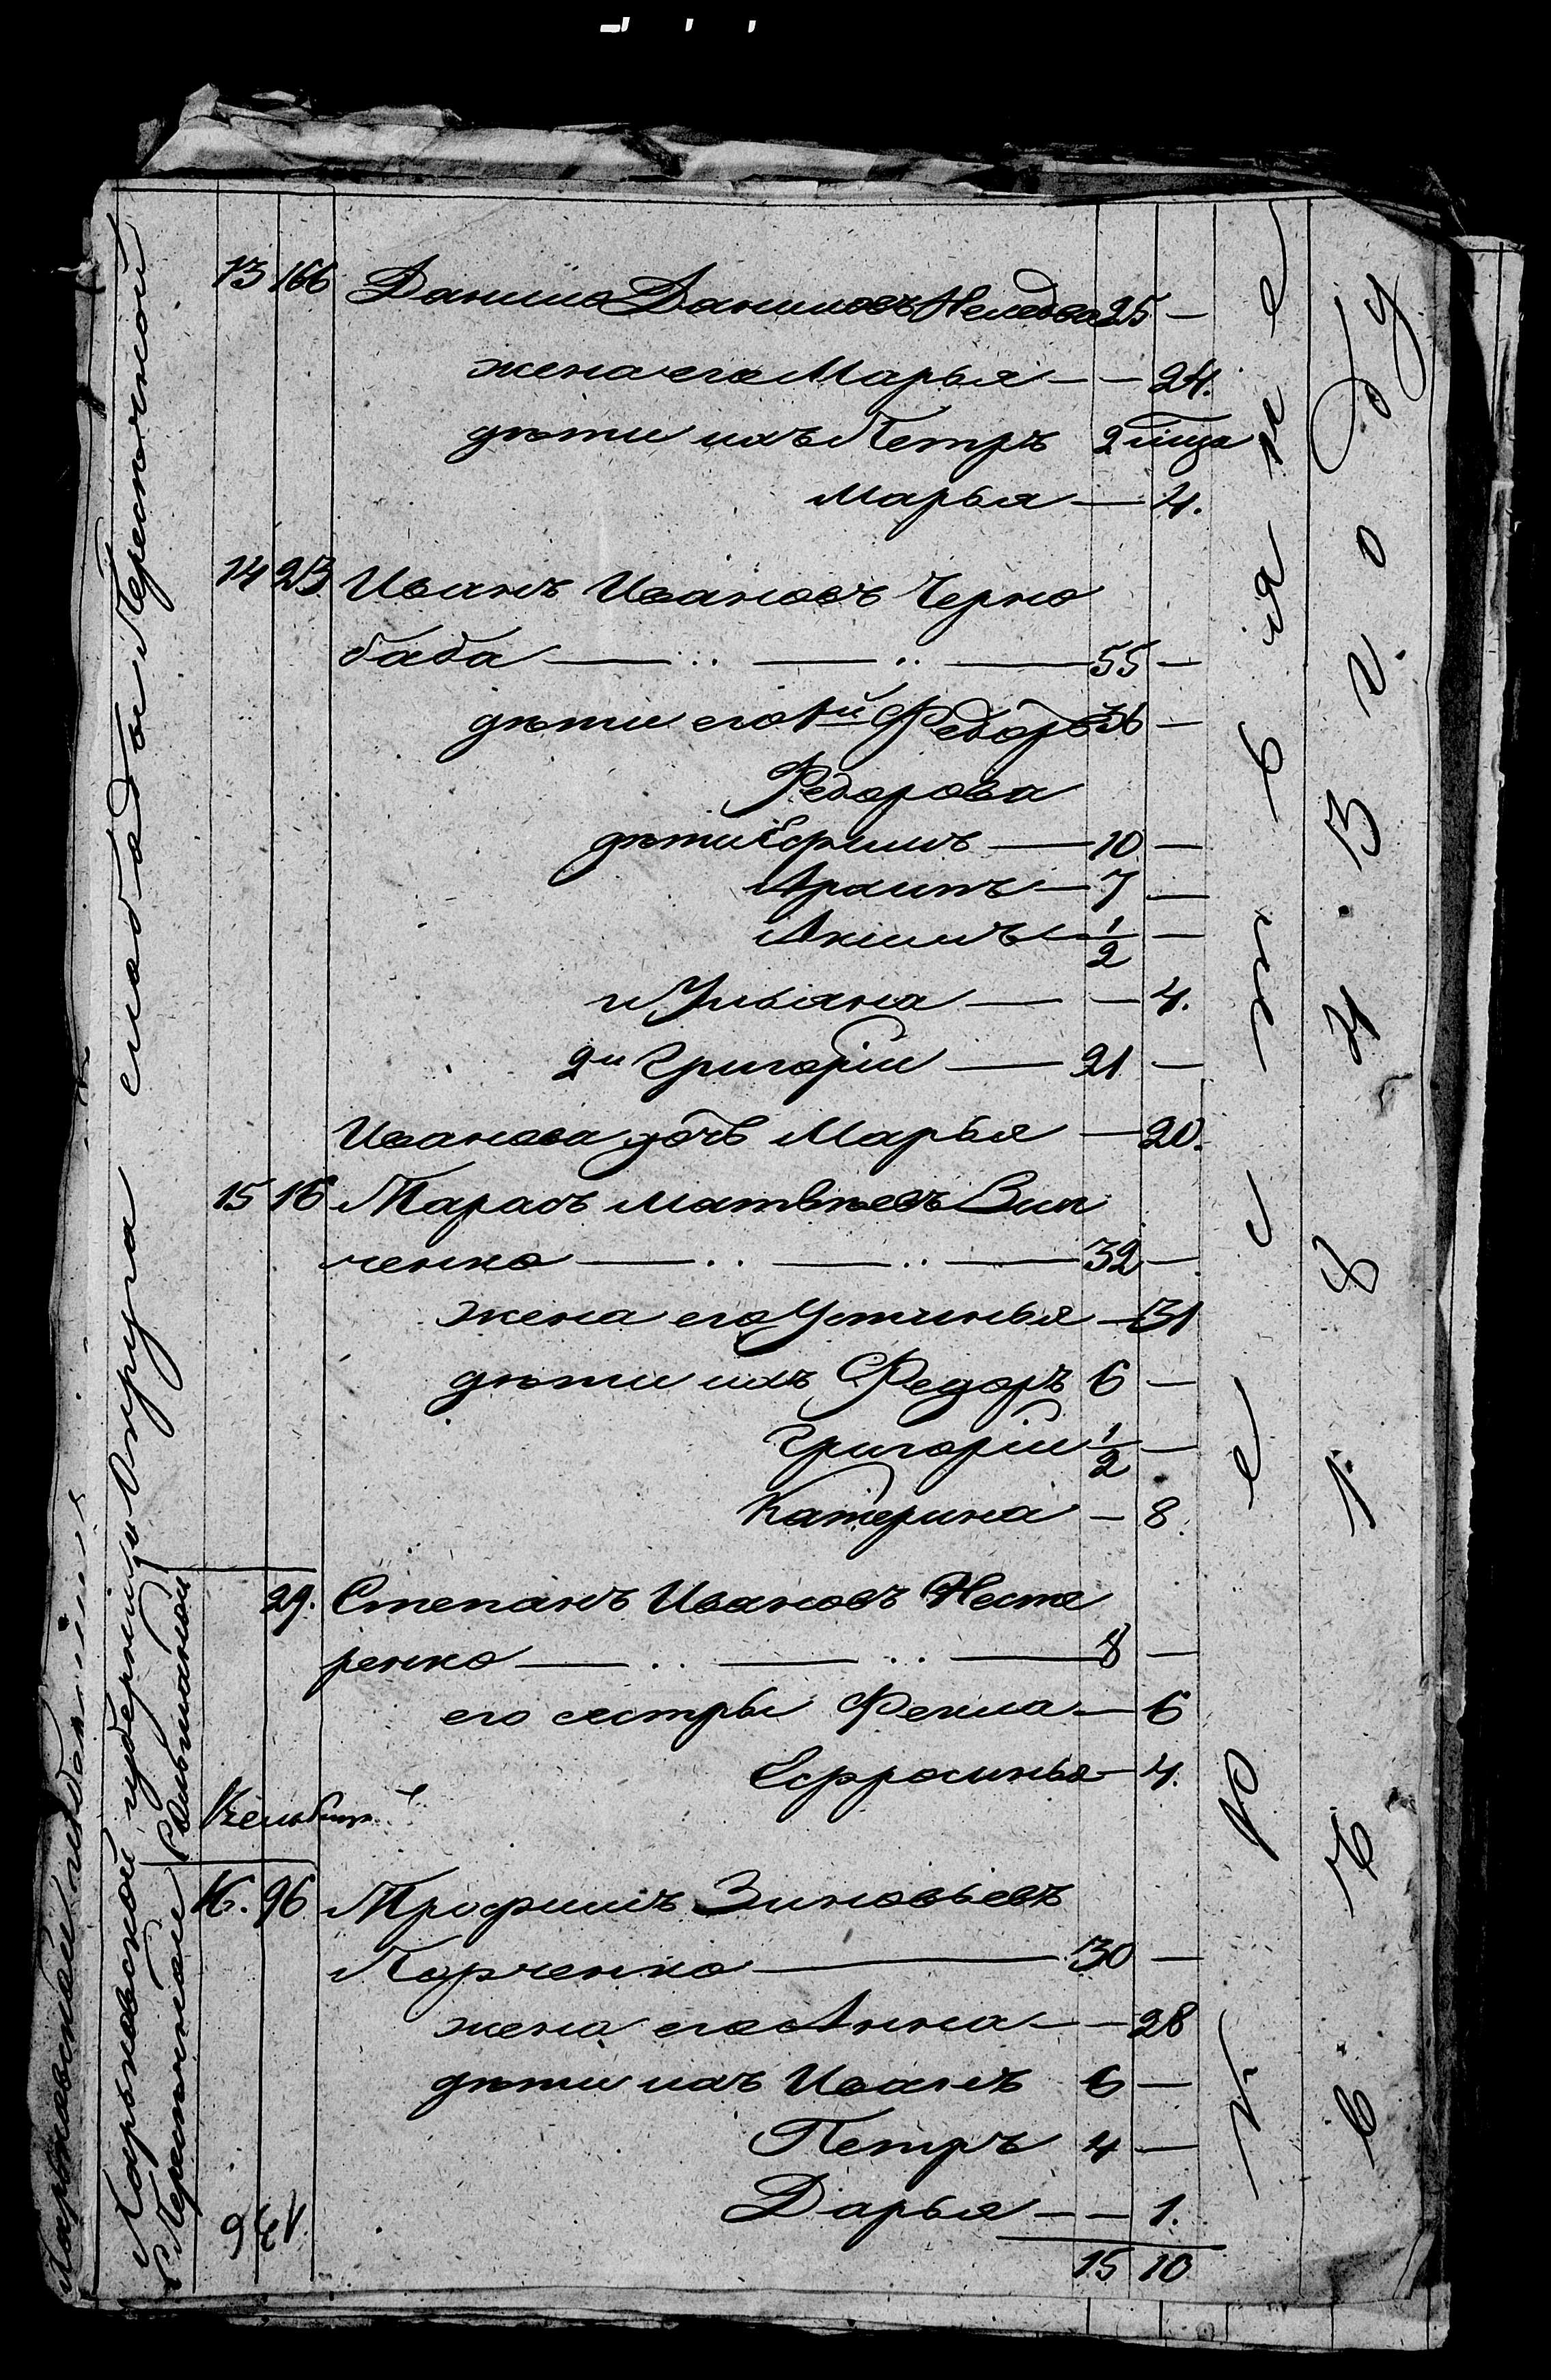 13 166 Данило Даниловъ Нелюба 25 —
жена его Марья — — 24.
дѣти ихъ Петръ 2
Марья — 4.
14 23 Иванъ Ивановъ Черно
баба — .. — .. — 55 —
дѣти его 1й Федоръ 36 —
Федорова
дѣти Ефимъ — 10 —
— 7 —
Акимъ — 1/2 —
и Ульяна — — 4.
2й Григорій — 21 —
Иванова дочь Марья — 20.
15 16 Тарасъ Матвѣевъ Вил
ченко — .. — .. — 32 —
жена его Устинья — 31
дѣти ихъ Федоръ 6 —
Григорій 1/2 —
Катерина — 8.
29. Степанъ Ивановъ Несте
ренко — .. — .. — 8 —
его сестры Фекла — 6
Ефросинья — 4.
16. 96 Трофимъ Зиновьевъ
— 30 —
жена его Анна — — 28
дѣти ихъ Иванъ 6 —
Петръ 4 —
Дарья — — 1.
15 10
Харьковской губерніи округа слободы
въ 1843 году